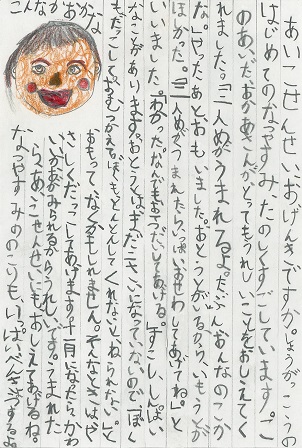 あいこせんせいおげんきですか。しょうがっこう
はじめてのなつやすみ、たのしくすごしています。こ
のあいだおかあさんが、とてもうれしいことをおしえてく
れました。「三人めがうまれるよ。たぶんおんなのこか
な。」やったあとおもいました。おとうとがいるから、いもうとが
ほしかった。「三人めがうまれたらいっぱいおせわしてあげてね。」と
いいました。「わかった。なんでもおてつだいしてあげる。」すこし、しんぱい
なことがあります。おとうとはまだ二さいになっていないので「ぼく
もだっこして。おむつかえて。もっととんとんしてくれないとねられない。」と
おもって、なくかもしれません。そんなときは、や
さしくだっこしてあげます。十一月になったら、かわ
いいかおがみられるからうれしいです。うまれた
ら、あいこせんせいにもおしえてあげるね。
なつやすみののこりも、いっぱいべんきょうするよ。
こんなかおかな